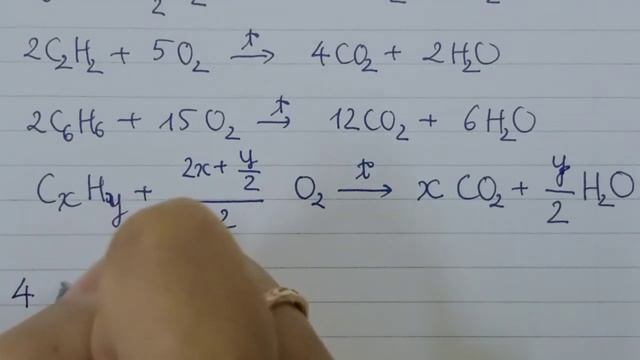 2C₂H₂ + 5O₂ →(t°) 4CO₂ + 2H₂O
2C₆H₆ + 15O₂ →(t°) 12CO₂ + 6H₂O
CₓHᵧ + (2x + y/2)/2 O₂ →(t°) x CO₂ + y/2 H₂O
4